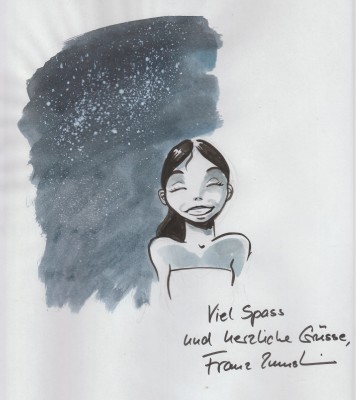 Viel Spass
und herzliche Grüsse,
Franz Zumstein